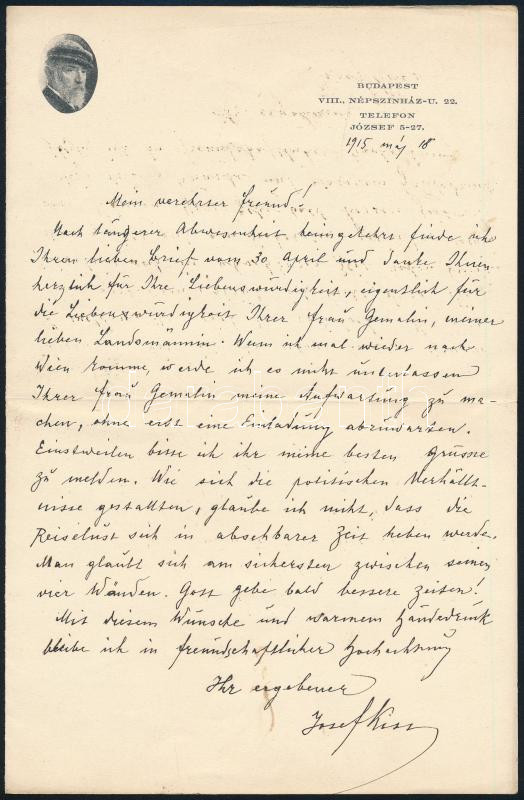 BUDAPEST
VIII., NÉPSZINHÁZ-U. 22.
TELEFON
JÓZSEF 5-27.
1915 máj 18
Mein verehrter Freund!
Nach längerer Abwesenheit heimgekehrt finde ich
Ihren lieben Brief vom 30 April und danke Ihnen
herzlich für Ihre Liebenswürdigkeit, eigentlich für
die Liebenswürdigkeit Ihrer Frau Gemalin, meiner
lieben Landsmännin. Wenn ich mal wieder nach
Wien komme, werde ich es nicht unterlassen
Ihrer Frau Gemalin meine Aufwartung zu ma-
chen, ohne erst eine Einladung abzuwarten.
Einstweilen bitte ich ihr meine besten Grüsse
zu melden. Wie sich die politischen Verhält-
nisse gestallten, glaube ich nicht, dass die
Reiselust sich in absehbarer Zeit heben werde.
Man glaubt sich am sichersten zwischen seinen
vier Wänden. Gott gebe bald bessere Zeiten!
Mit diesem Wunsche und warmem Händedruk
bleibe ich in freundschaftlicher Hochachtung
Ihr ergebener
Josef Kiss